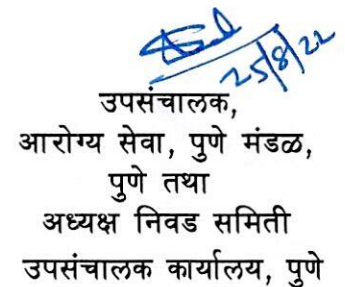 25/8/22
उपसंचालक,
आरोग्य सेवा, पुणे मंडळ,
पुणे तथा
अध्यक्ष निवड समिती
उपसंचालक कार्यालय, पुणे